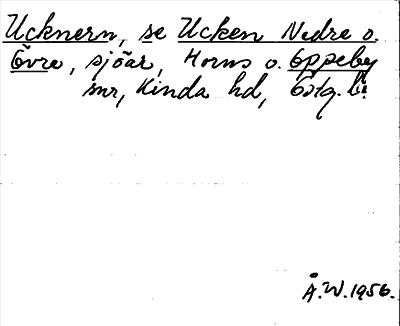 Ucknern, se Ucken Nedre o.
Övre, sjöar, Horns o. Oppeby
snr, Kinda hd, Östg. l.
Å.W.1956.